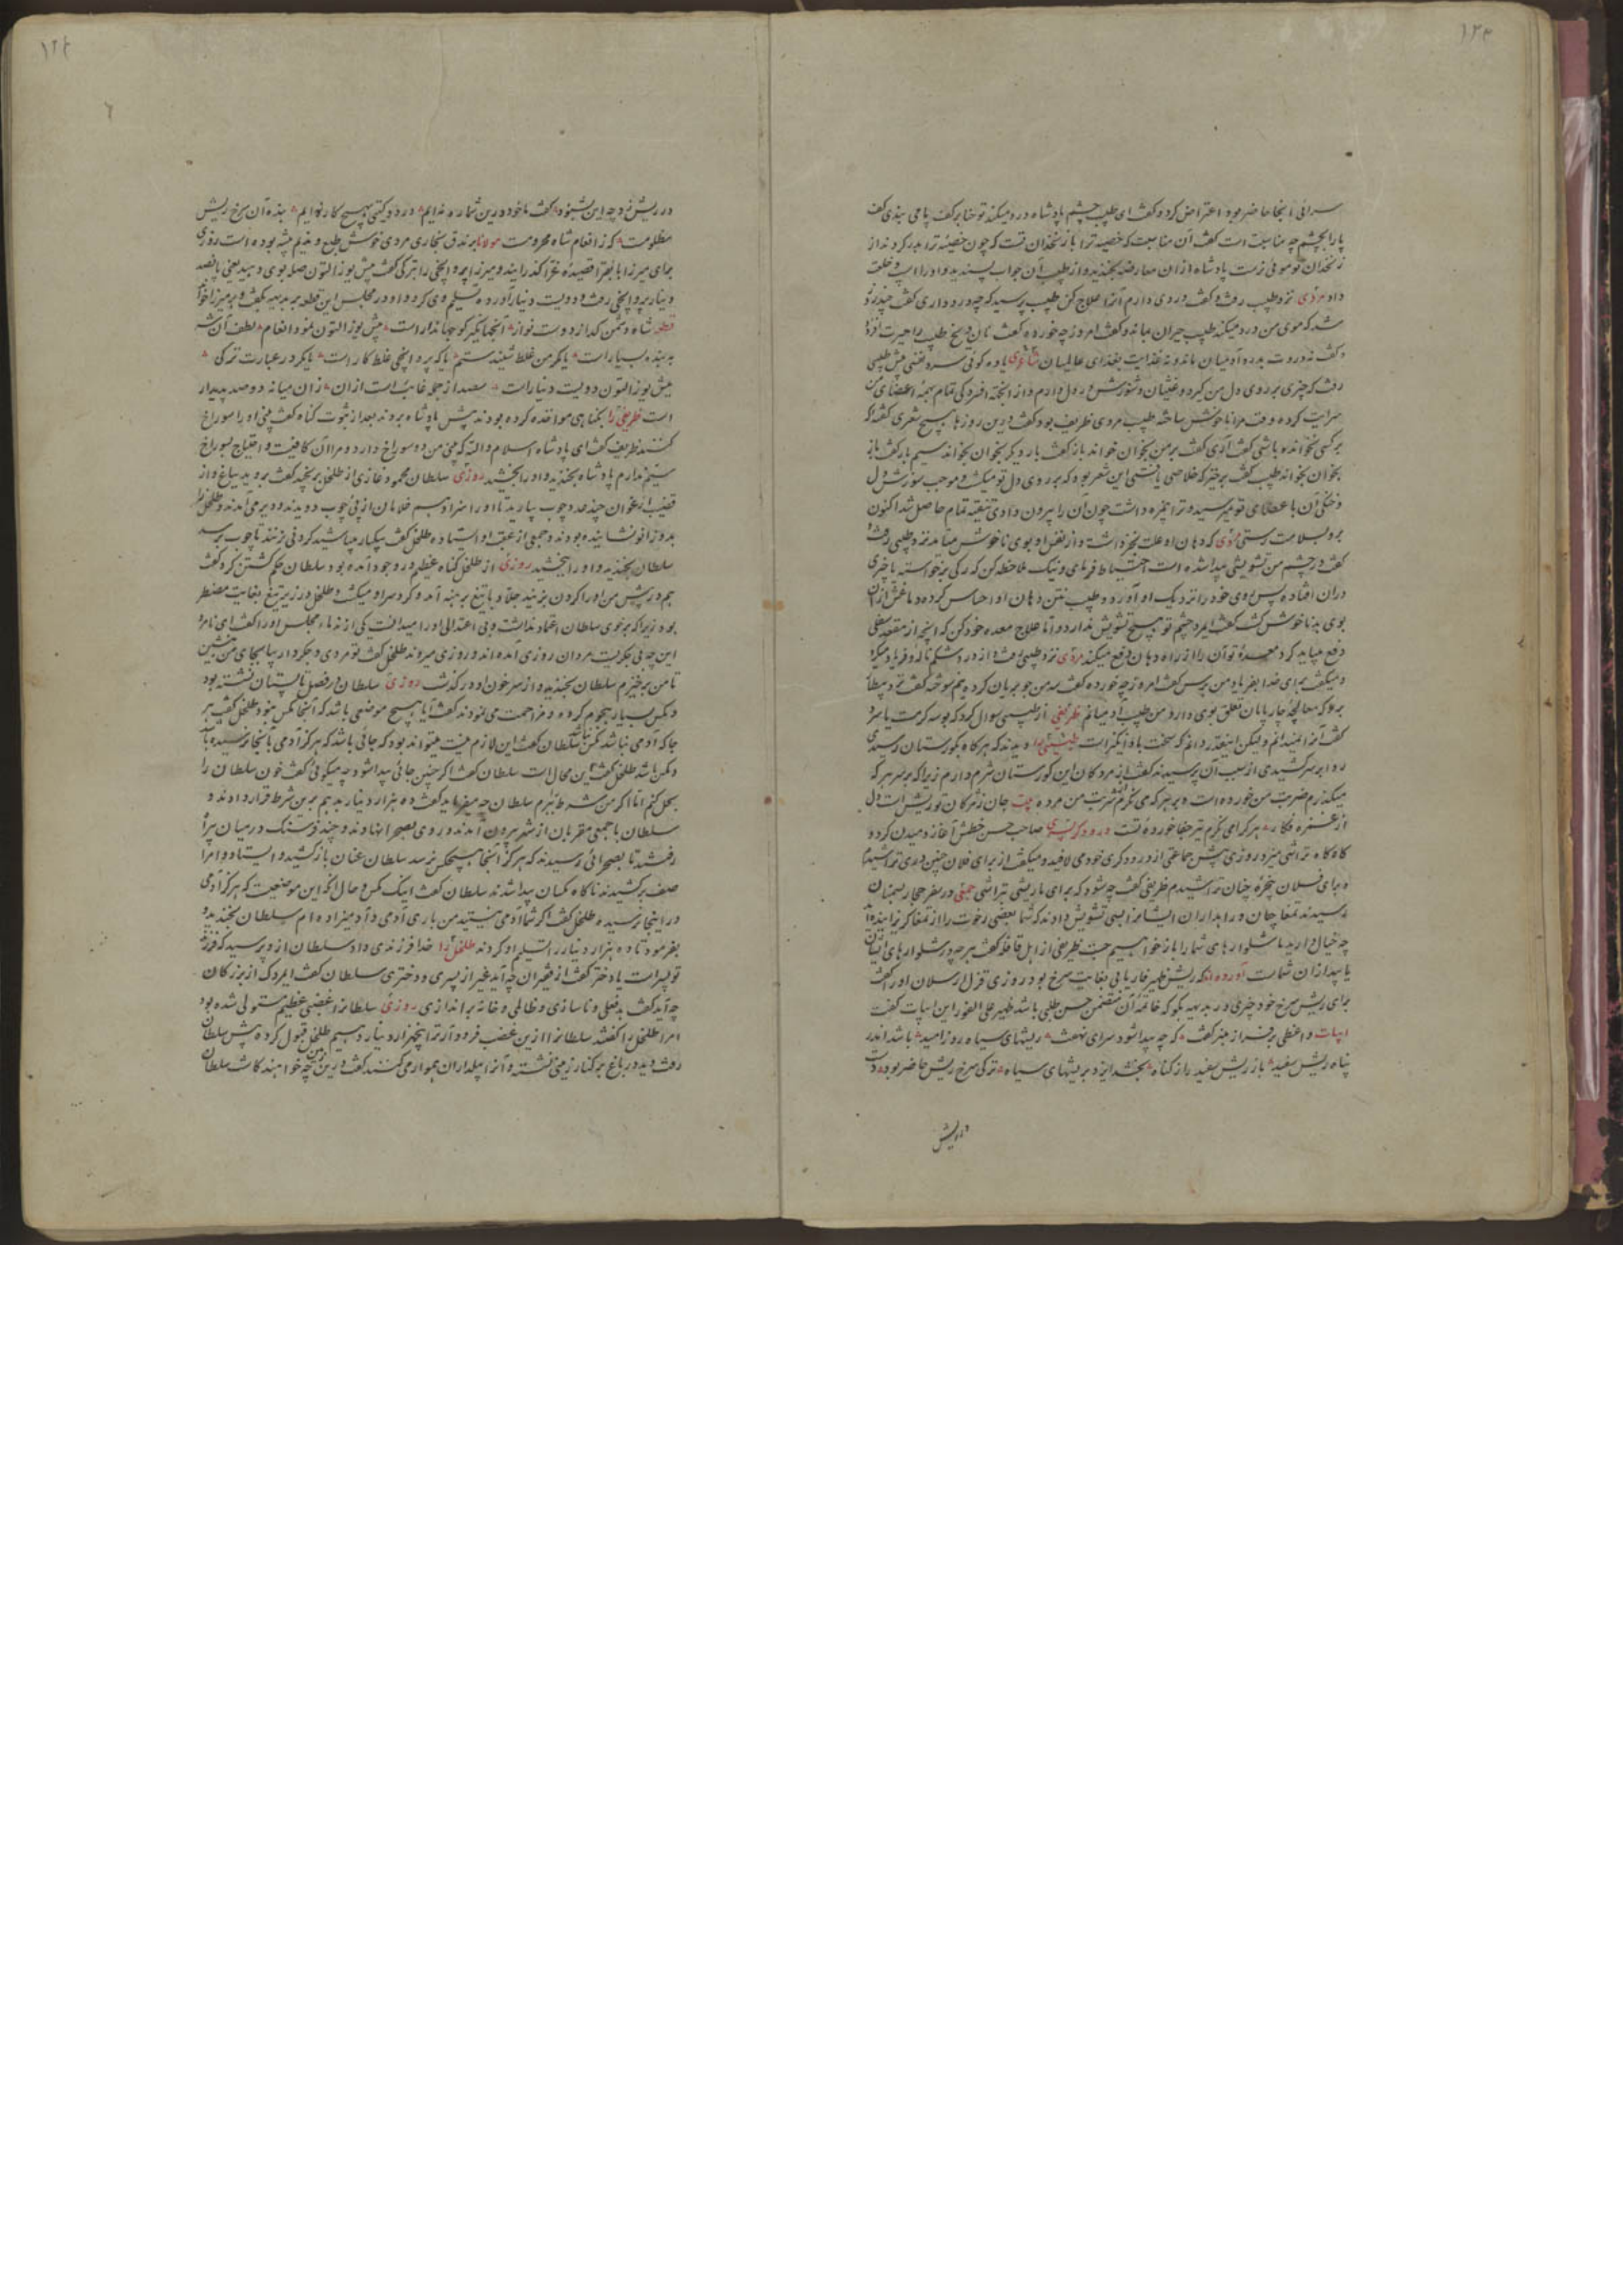 ۱۲۳
سرائی آنجا حاضر بود اعتراض کرد و گفت ای طبیب چشم پادشاه درد میکند تو حنا بر کف پا می بندی کف
پا را بچشم چه مناسبت است گفت آن مناسبت که خصیه ترا با زنخدان تست که چون خصیه ترا بدر کردند از
زنخدان تو موئی نرست پادشاه از آن معارضه بخندید و از طبیب آن جواب پسندید و او را اسپ و خلعت
داد مردی نزد طبیب رفت و گفت دردی دارم آنرا علاج کن طبیب پرسید که چه درد داری گفت چند روز
شد که موی من درد میکند طبیب حیران بماند و گفت امروز چه خورده گفت نان و یخ طبیب را حیرت افزود
و گفت نه دردت بدرد آدمیان ماند و نه غذایت بغذای عالمیان شاعری یاوه گوئی سرد نفسی پیش طبیبی
رفت که چیزی بر روی دل من گیرد و غثیان و شورش در دل دارم و از آنجهة افسردگی تمام بهمه اعضای من
سرایت کرده وقت مرا ناخوش ساخته طبیب مردی ظریف بود گفت درین روزها هیچ شعری گفته که
بر کسی نخوانده باشی گفت آری گفت بر من بخوان خواند باز گفت بار دیگر بخوان بخواند سیم بار گفت باز
بخوان بخواند طبیب گفت برخیز که خلاصی یافتی این شعر بود که بر روی دل تو میگشت و موجب سوزش دل
و خنکی آن باعضای تو میرسید و ترا آزرده داشت چون آن را بیرون دادی تنقیه تمام حاصل شد اکنون
برو بسلامت رستی مردی که دهان او علت بخر داشت و از نفس او بوی ناخوش میآمد نزد طبیبی رفت و
گفت در چشم من تشویشی پیدا شده است احتیاط فرمای و نیک ملاحظه کن که رگی برخواسته یا چیزی
در آن افتاده پس روی خود را نزدیک او آورد و طبیب نتن دهان او احساس کرده دماغش از آن
بوی بد ناخوش گشت گفت ایمرد چشم تو هیچ تشویش ندارد و اما علاج معده خود کن که آنچه از مقعد سفلی
دفع میباید کرد معده تو آن را از راه دهان دفع میکند مردی نزد طبیبی رفت و از درد شکم ناله و فریاد میکرد
و میگفت برای خدا بفریاد من برس گفت امروز چه خورده گفت سه من جو بریان کرده نیم سوخته گفت نزد بیطار
برو که معالجه چارپایان تعلق بوی دارد من طبیب آدمیانم ظریفی از طبیبی سوال کرد که بوسه گرمست یا سرد
گفت آنرا نمیدانم و لیکن اینقدر دانم که سخت باد انگیز است طبیبی را دیدند که هرگاه بگورستان رسیدی
ردا بر سر کشیدی از سبب آن پرسیدند گفت از مردگان این گورستان شرم دارم زیرا که بر سر هر که
میگذرم ضربت من خورده است و بر هر که می نگرم از شربت من مرده بیت جان ز مژگان تو ریش است و دل
از غمزه فگار هر کرا می نگرم تیر جفا خورده تست درودگر پسری صاحب حسن خطش آغاز دمیدن کرد و
گاه گاه تراشی میزد روزی پیش جماعتی از درودگری خود می لافید و میگفت از برای فلان چنین دری تراشیدم
و برای فلان پنجره چنان تراشیدم ظریفی گفت چه شود که برای ما ریشی تراشی جمعی در سفر حجاز بسمنان
رسیدند تمغاچیان و راهداران ایشانرا بسی تشویش دادند که شما بعضی رخوت را از تمغا گریزانیده اید
چه خیال دارید ما شلوارهای شما را باز خواهیم جست ظریفی از اهل قافله گفت هر چه در شلوارهای ایشان
یابید از آن شماست آورده اند که ریش ظهیر فاریابی بغایت سرخ بود روزی قزل ارسلان او را گفت
برای ریش سرخ خود چیزی در بدیهه بگو که خاتمه آن متضمن حسن طلبی باشد ظهیر علی الفور این ابیات گفت
ابیات واعظی بر فراز منبر گفت که چه پیدا شود سرای نهفت ریشهای سیاه روز امید باشد اندر
پناه ریش سفید باز ریش سفید را ز گناه بخشد ایزد بریشهای سیاه ترکی سرخ ریش حاضر بود دست
در ریش
۱۲۴
در ریش زد چه این شنود گفت ما خود درین شماره نه ایم در دو گیتی بهیچ کار نه ایم بنده آن سرخ ریش
مظلومست که ز انعام شاه محرومست مولانا برندق بخاری مردی خوش طبع و ندیم پیشه بوده است روزی
برای میرزا بایقرا قصیده غرا گذرانید و میرزا پروانچی را بترکی گفت بیش یوز التون صله بوی دهید یعنی پانصد
دینار پروانچی رفت و دویست دینار آورد و تسلیم وی کرد و او در مجلس این قطعه بر بدیهه گفت و بر میرزا خواند
قطعه شاه دشمن گداز دوست نواز آن جهانگیر کو جهاندار است بیش یوز التون نمود انعام لطف آن شه
به بنده بسیار است یا مگر من غلط شنیدستم یا که پروانچی غلط کار است یا مگر در عبارت ترکی
بیش یوز التون دویست دینار است سیصد از جمله غایب است از آن زان میانه دو صد پدیدار
است ظریفی را بگناهی مواخذه کرده بودند پیش پادشاه بردند بعد از ثبوت گناه گفت بینی او را سوراخ
کنند ظریف گفت ای پادشاه اسلام والله که بینی من دو سوراخ دارد و مرا آن کافیست و احتیاج بسوراخ
سیم ندارم پادشاه بخندید و او را بخشید روزی سلطان محمود غازی از طلخک برنجید گفت بروید بباغ و از
قضیب ارغوان چند عدد چوب بیارید تا او را سزا دهم غلامان از پی چوب دویدند و دیر می آمدند و طلخک را
بدو زانو نشانیده بودند و جمعی از عقب او ایستاده طلخک گفت بیکار مباشید گردنی زنند تا چوب برسد
سلطان بخندید و او را بخشید روزی از طلخک گناه عظیم در وجود آمده بود سلطان حکم کشتن کرد و گفت
هم در پیش من او را گردن بزنید جلاد با تیغ برهنه آمد و گرد سر او میگشت و طلخک در زیر تیغ بغایت مضطر
بود زیرا که بر خوی سلطان اعتماد نداشت و بی اعتدالی او را میدانست یکی از ندماء مجلس او را گفت ای نامرد
این چه بی جگریست مردان روزی آمده اند و روزی میروند طلخک گفت تو مردی و جگر دار بیا بجای من بنشین
تا من برخیزم سلطان بخندید و از سر خون او در گذشت روزی سلطان در فصل تابستان نشسته بود
و مگس بسیار هجوم کرده و مزاحمت می نمودند گفت آیا هیچ موضعی باشد که آنجا مگس نبود طلخک گفت هر
جا که آدمی نباشد مگس نباشد سلطان گفت این لازم نیست میتواند بود که جائی باشد که هرگز آدمی بآنجا نرسیده باشد
و مگس باشد طلخک گفت این محال است سلطان گفت اگر چنین جائی پیدا شود چه میگوئی گفت خون سلطان را
بحل کنم اما اگر من شرط ببرم سلطان چه میفرماید گفت ده هزار دینار بدهم برین شرط قرار دادند و
سلطان با جمعی مقربان از شهر بیرون آمدند و روی بصحرا نهادند و چند فرسنگ در میان بیراه
رفتند تا بصحرائی رسیدند که هرگز آنجا هیچکس نرسد سلطان عنان باز کشید و ایستاد و امرا
صف برکشیدند ناگاه مگسان پیدا شدند سلطان گفت اینک مگس و حال آنکه این موضعیست که هرگز آدمی
در اینجا نرسیده طلخک گفت اگر شما آدمی نیستید من باری آدمی و آدمیزاده ام سلطان بخندید و
بفرمود تا ده هزار دینار زر تسلیم او کردند طلخک را خدا فرزندی داد سلطان ازو پرسید که فرزند
تو پسر است یا دختر گفت از فقیران چه آید غیر از پسری و دختری سلطان گفت ایمردک از بزرگان
چه آید گفت بدفعلی و ناسازی و ظالمی و خانه براندازی روزی سلطانرا غضبی عظیم مستولی شده بود
امرا طلخک را گفتند سلطانرا ازین غضب فرود آر ترا پنجهزار دینار دهیم طلخک قبول کرده پیش سلطان
رفت دید در باغ بر کنار زمینی نشسته و آنرا بیلداران هموار می کنند گفت درین زمین چه خواهند کاشت سلطان